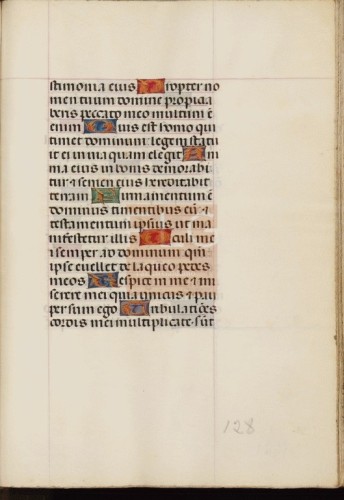 stimonia eius Propter no
men tuum domine propicia
beris peccato meo multum ē
enim Quis est homo qui
timet dominum legem statu
it ei in uia quam elegit Ani
ma eius in bonis demorabi
tur & semen eius hereditabit
terram Firmamentum ē
dominus timentibus eū &
testamentum ipsius ut ma
nifestetur illis Oculi me
i semper ad dominum qm̄
ipse euellet de laqueo pedes
meos Respice in me & mi
serere mei quia unicus & pau
per sum ego Tribulatiōes
cordis mei multiplicate sūt
128